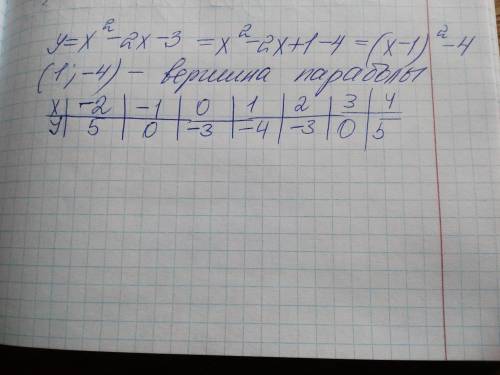 y=x²-2x-3 =x²-2x+1-4=(x-1)²-4
(1;-4) - вершина параболы
x | -2 | -1 | 0 | 1 | 2 | 3 | 4
y | 5 | 0 | -3 | -4 | -3 | 0 | 5